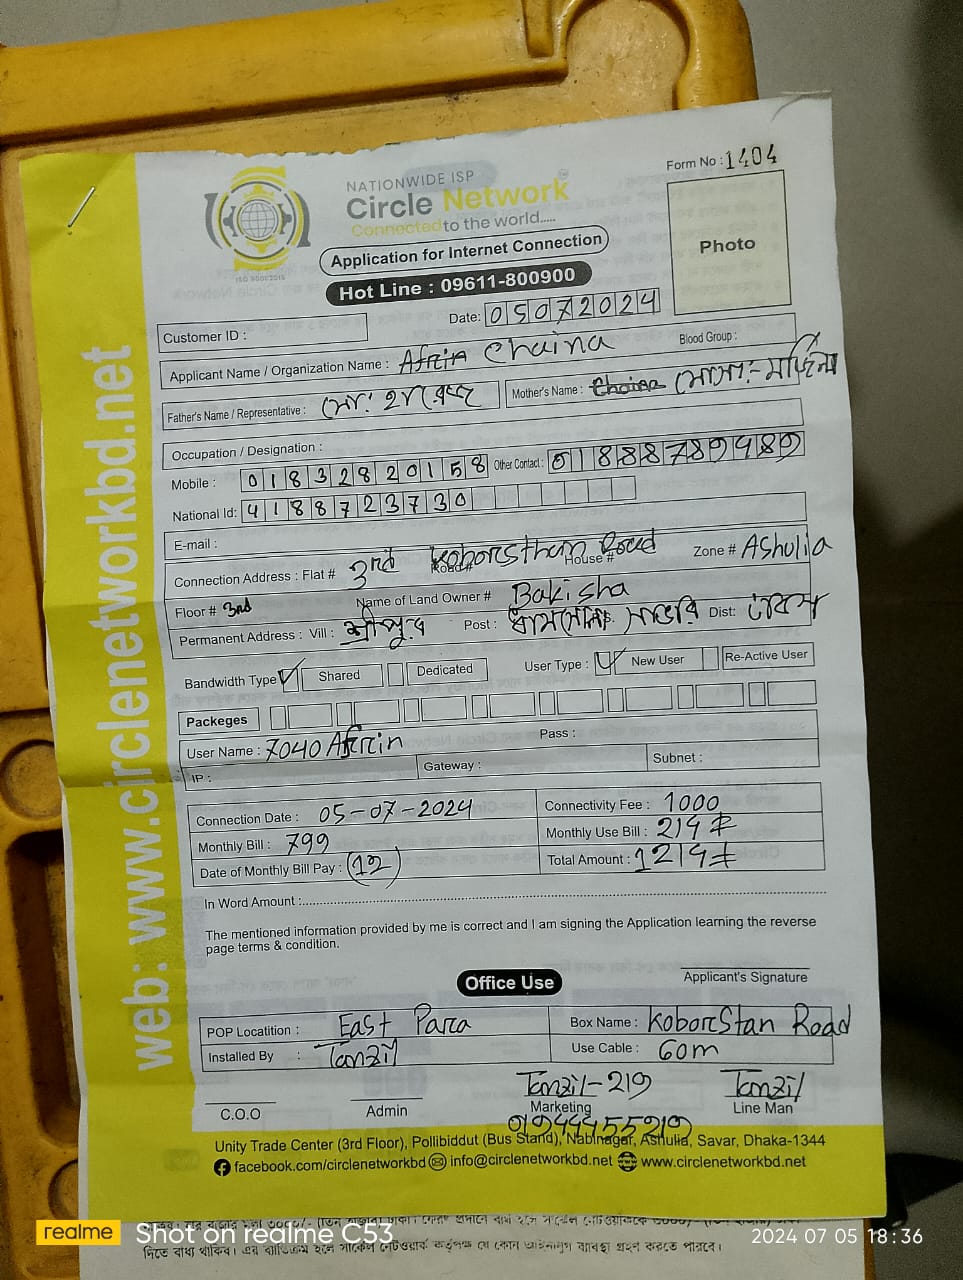 Form No : 1404
NATIONWIDE ISP
Circle Network
Connected to the world.....
ISO 9001:2015
Application for Internet Connection
Hot Line : 09611-800900
Photo
Date: 05072024
Customer ID :
Applicant Name / Organization Name : Afrin Chaina Blood Group :
Father's Name / Representative : মো: Mother's Name : মোসা:-
Occupation / Designation :
Mobile : 01832820158 Other Contact : 01888789489
National Id: 4188723730
E-mail :
Connection Address : Flat # 3rd Road # Koborsthan Road House # Zone # Ashulia
Floor # 3rd Name of Land Owner # Bakisha
Permanent Address : Vill : শ্রীপুর Post : সাভার Dist: ঢাকা
Bandwidth Type Shared Dedicated User Type : New User Re-Active User
Packeges
User Name : 7040 Afrin Pass :
IP : Gateway : Subnet :
Connection Date : 05-07-2024 Connectivity Fee : 1000
Monthly Bill : 799 Monthly Use Bill : 214
Date of Monthly Bill Pay : (12) Total Amount : 1214
In Word Amount :
The mentioned information provided by me is correct and I am signing the Application learning the reverse
page terms & condition.
Applicant's Signature
Office Use
POP Locatition : East Para Box Name : Koborstan Road
Installed By : Tanzil Use Cable : 60m
Tanzil-219 Tanzil
C.O.O Admin Marketing Line Man
Unity Trade Center (3rd Floor), Pollibiddut (Bus Stand), Nabinagar, Ashulia, Savar, Dhaka-1344
facebook.com/circlenetworkbd info@circlenetworkbd.net www.circlenetworkbd.net
web: www.circlenetworkbd.net
দিতে বাধ্য থাকিব। এর ব্যতিক্রম হলে সার্কেল নেটওয়ার্ক কর্তৃপক্ষ যে কোন আইনানুগ ব্যবস্থা গ্রহণ করতে পারবে।
realme Shot on realme C53 2024 07 05 18:36